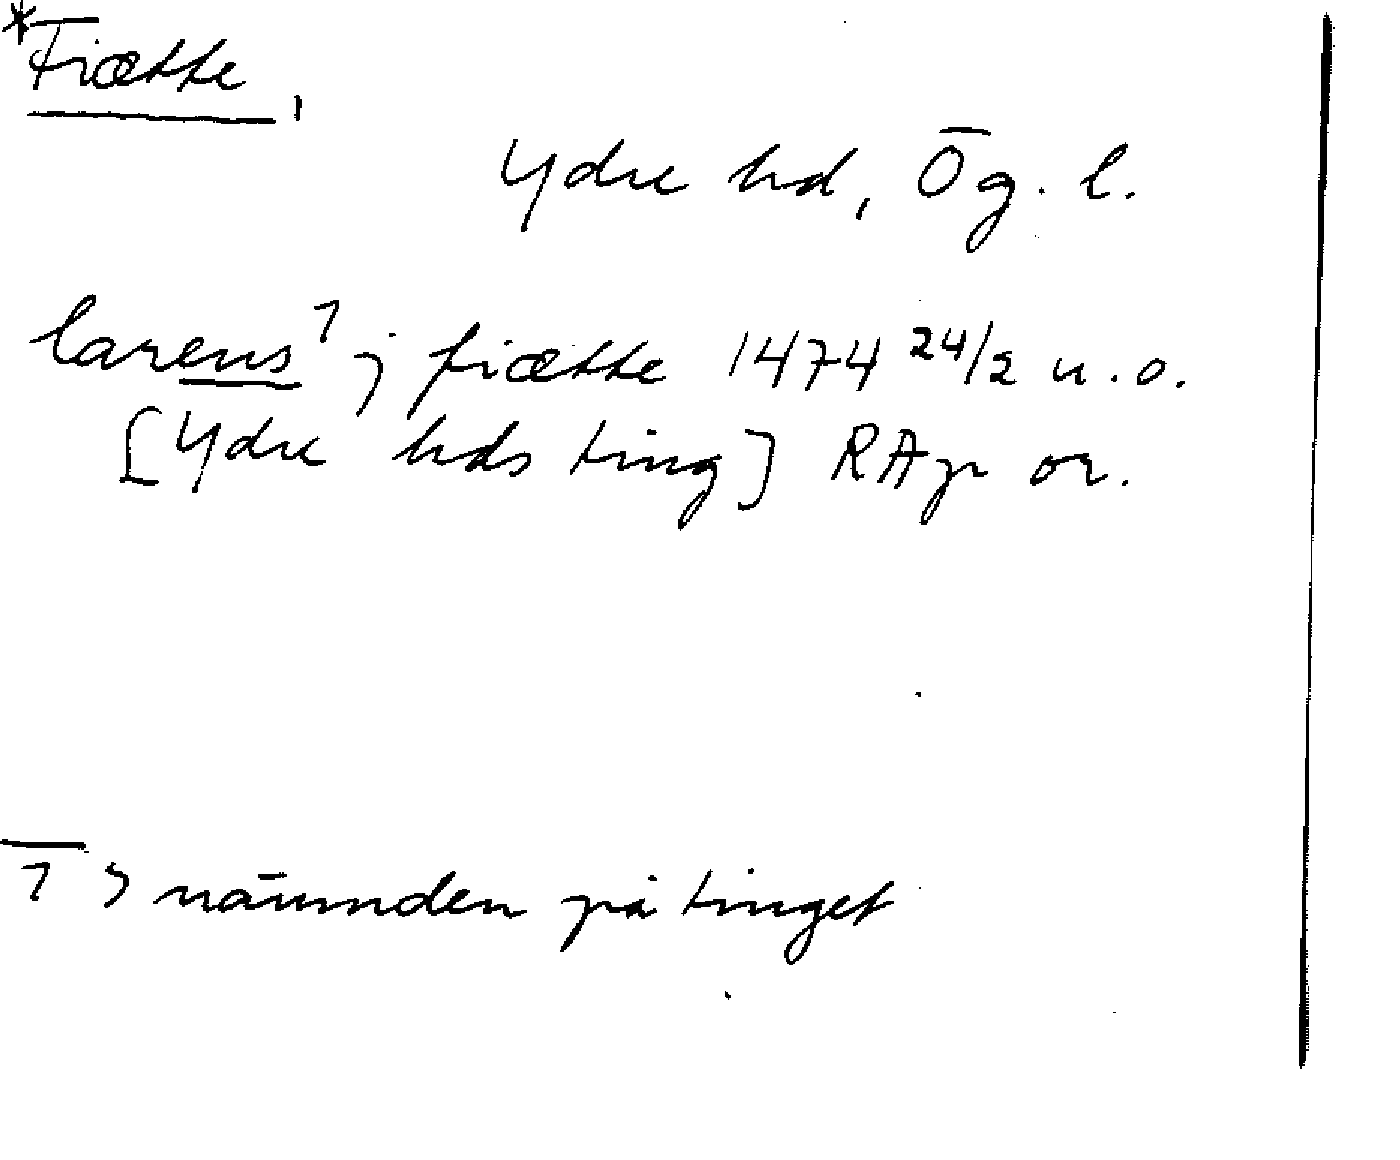 *Fiætte,
Ydre hd, Ög. l.
larens¹ j fiætte 1474 24/2 u.o.
[Ydre hds ting] RAp or.
1 i nämnden på tinget